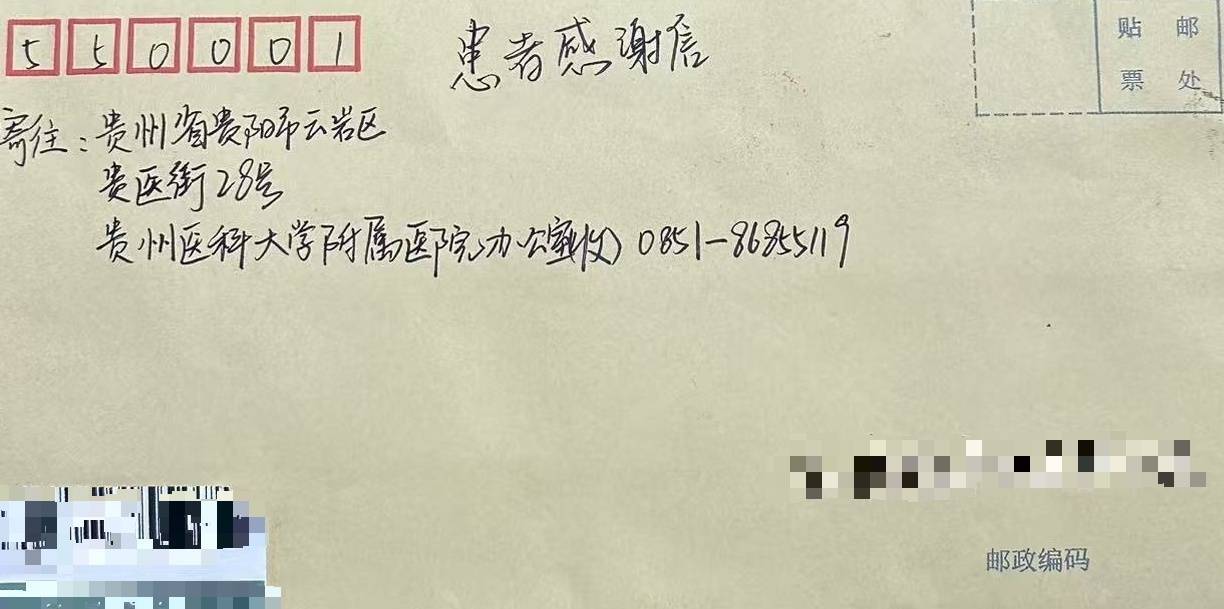 550001
患者感谢信
贴 邮
票 处
寄往：贵州省贵阳市云岩区
贵医街28号
贵州医科大学附属医院办公室(收) 0851-86855119
邮政编码